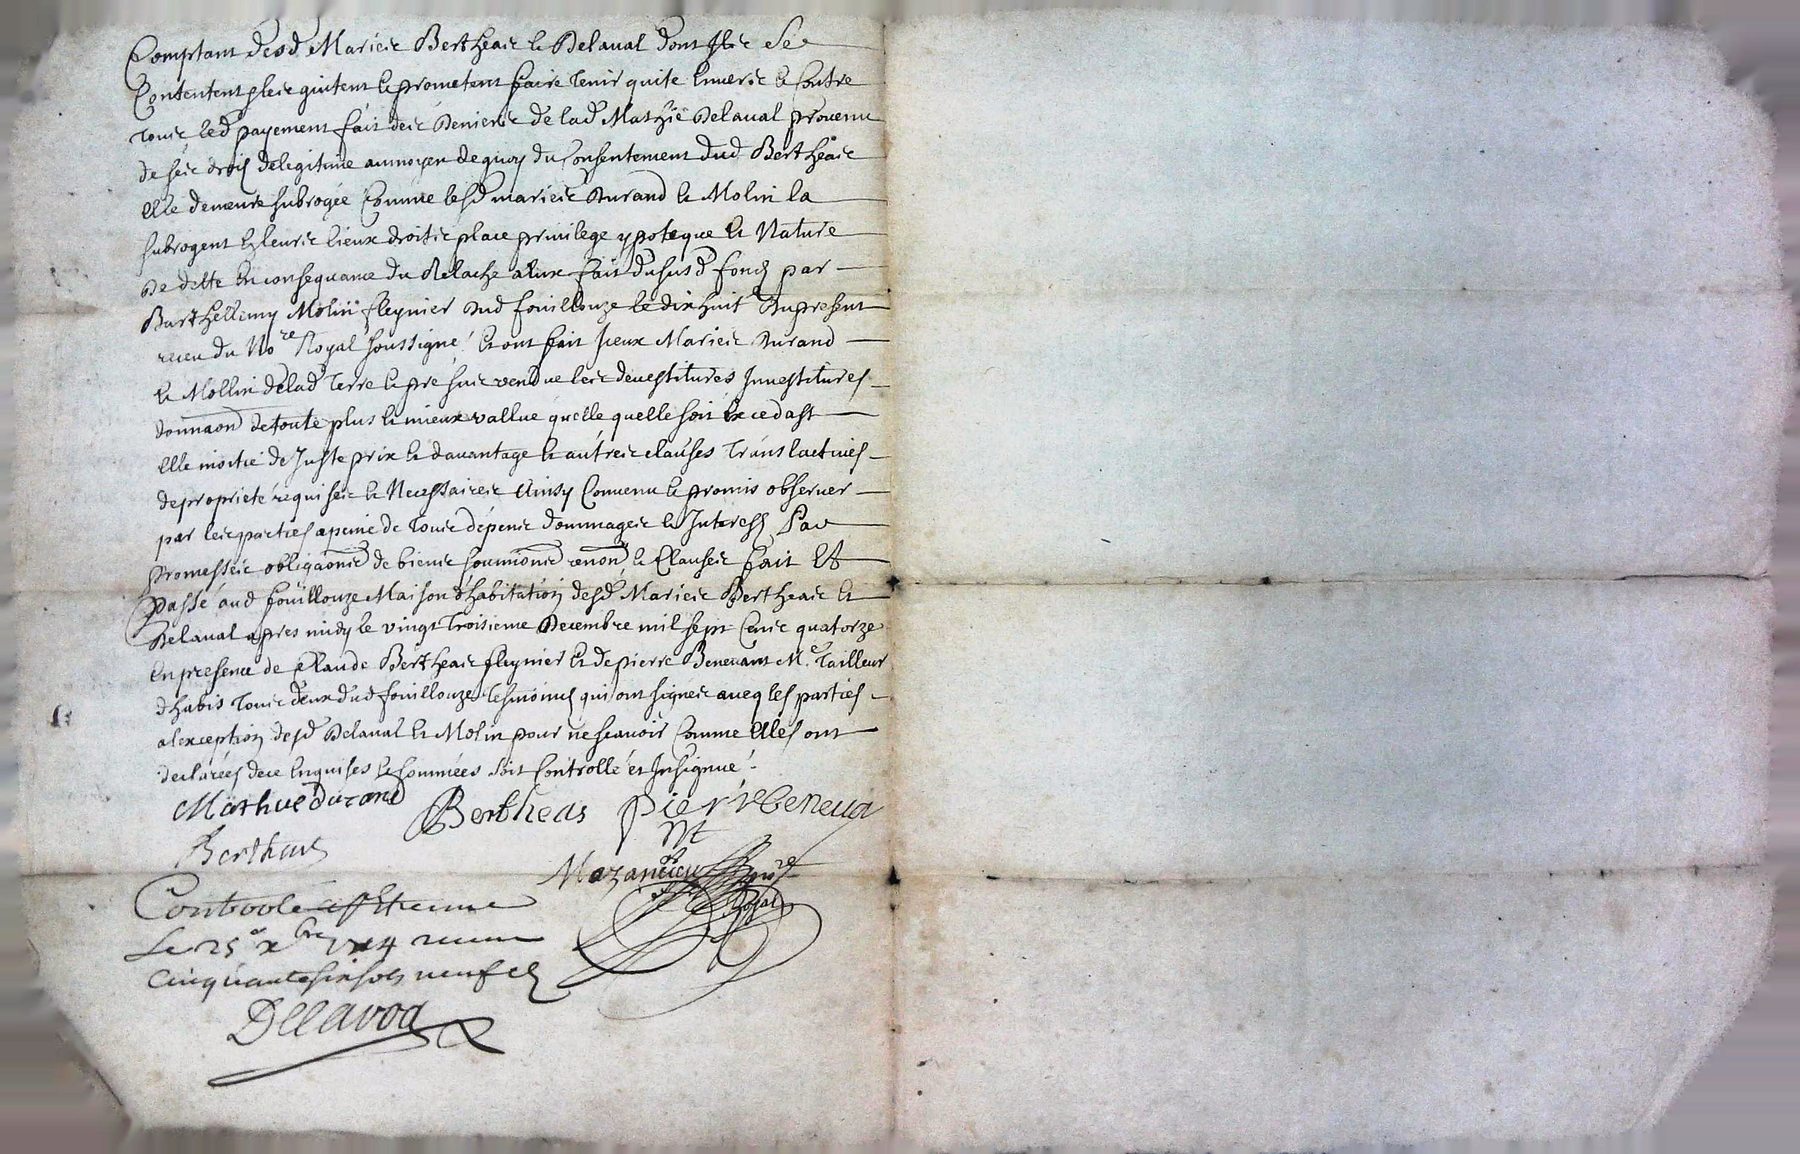 Comptant desd. Mariés Bertheas et Delaval dont Ils se
Contentent les quitent et prometent faire tenir quite envers et Contre
tous led payement fait des deniers de lad Mathie Delaval provenu
de ses droits delegitime aumoyen dequoy du Consentement dud Bertheas
elle demeure subrogée Comme lesd mariés Durand et Molin la
subrogent En leurs lieux droits place privilege ypoteque et Nature
De dette En consequance du Relache aeux fait dususd fond par
Barthellemy Molin fleynier dud fouillouze le dix huit Dupresent
receu du Nore Royal soussigné Et ont fait Iceux Mariés Durand
et Mollin delad Terre et pré sus vendue les devestitures Investitures
donnaon detoute plus et mieux vallue quelle quelle soit Excedast
elle moitié de Juste prix et davantage et autres clauses Translatives
depropriete requises et Necessaires Ainsy Convenu et promis observer
par les parties apeine de tous dépens dommages et Interests Par
Promesses obligaons de biens soumions renonc et Clauses fait Et
Passé aud fouillouze Maison d'habitation desd Mariés Bertheas et
Delaval apres midy le vingt Troisieme Decembre mil sept Cens quatorze
En presence de Claude Bertheas fleynier Et de pierre Benevant Me Tailleur
d'habis Tous deux dud fouillouze Tesmoins qui ont signés avec les parties
alexception desd Delaval et Molin pour ne scavoir Comme Elles ont
declarées de ce Enquises et sommées soit Controllé et Insignué.
Mathieu durand Bertheas Pierre beneva
nt
Bertheas
Mazandieu Nore
Royal
Controole a St Etienne
Le 25e xbre 1714 receu
Cinquante six sols neuf d
Dellavoa